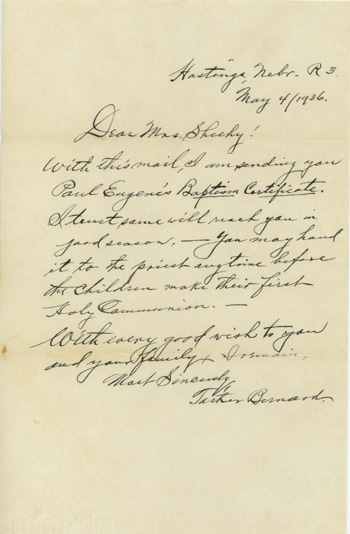 Hastings, Nebr. R 3.
May 4/1936.
Dear Mrs. Sheehy!
With this mail, I am sending you
Paul Eugene's Baptism Certificate.
I trust same will reach you in
good season, — You may hand
it to the priest anytime before
the children make their first
Holy Communion. —
With every good wish to you
and your family I remain,
Most Sincerely
Bernard.